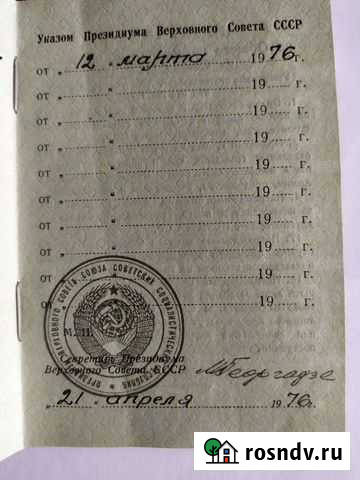 Указом Президиума Верховного Совета СССР
от „ 12 " марта 1976г.
от „ " 19 г.
от „ " 19 г.
от „ " 19 г.
от „ " 19 г.
от „ " 19 г.
от „ " 19 г.
от „ " 19 г.
от „ " 19 г.
от „ " 19 г.
ПРЕЗИДИУМ ВЕРХОВНОГО СОВЕТА СОЮЗА СОВЕТСКИХ СОЦИАЛИСТИЧЕСКИХ РЕСПУБЛИК
М. П.
Секретарь Президиума
Верховного Совета СССР
М Георгадзе
„ 21 " апреля 1976г.
rosndv.ru